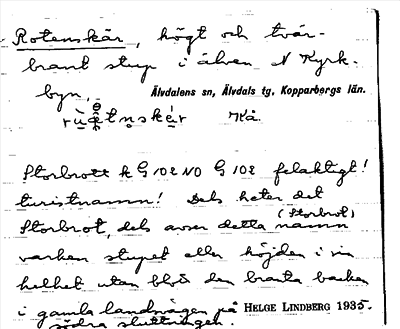 Rotenskär, högt och tvär-
brant stup i älven N Kyrk-
byn, Älvdalens sn, Älvdals tg, Kopparbergs län.
Kå.
Storbrott k G 102 NO G 102 felaktigt!
turistnamn! Dels heter det
(Storbrot)
Storbrot, dels avser detta namn
varken stupet eller höjden i sin
helhet utan blott den branta backen
i gamla landsvägen på HELGE LINDBERG 1935.
södra sluttningen.